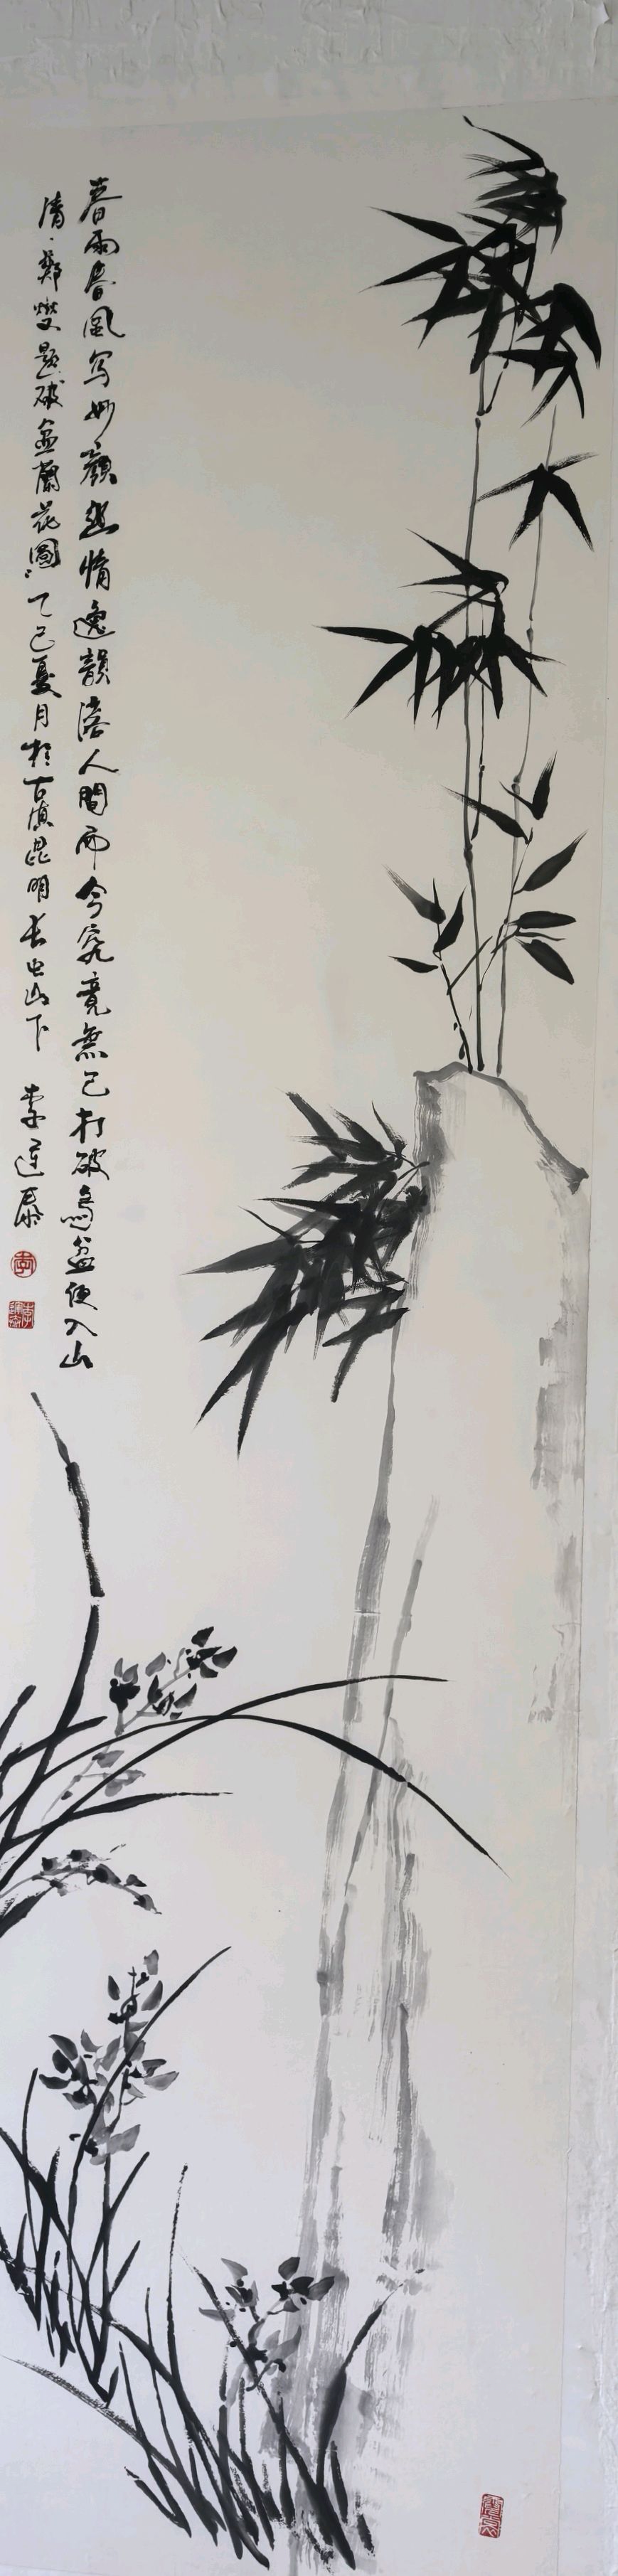 春雨春风写妙颜幽情逸韻落人間而今究竟無己打破烏盆便入山
清·鄭燮題破盆蘭花圖乙巳夏月於古滇昆明长虫山下 李運泰